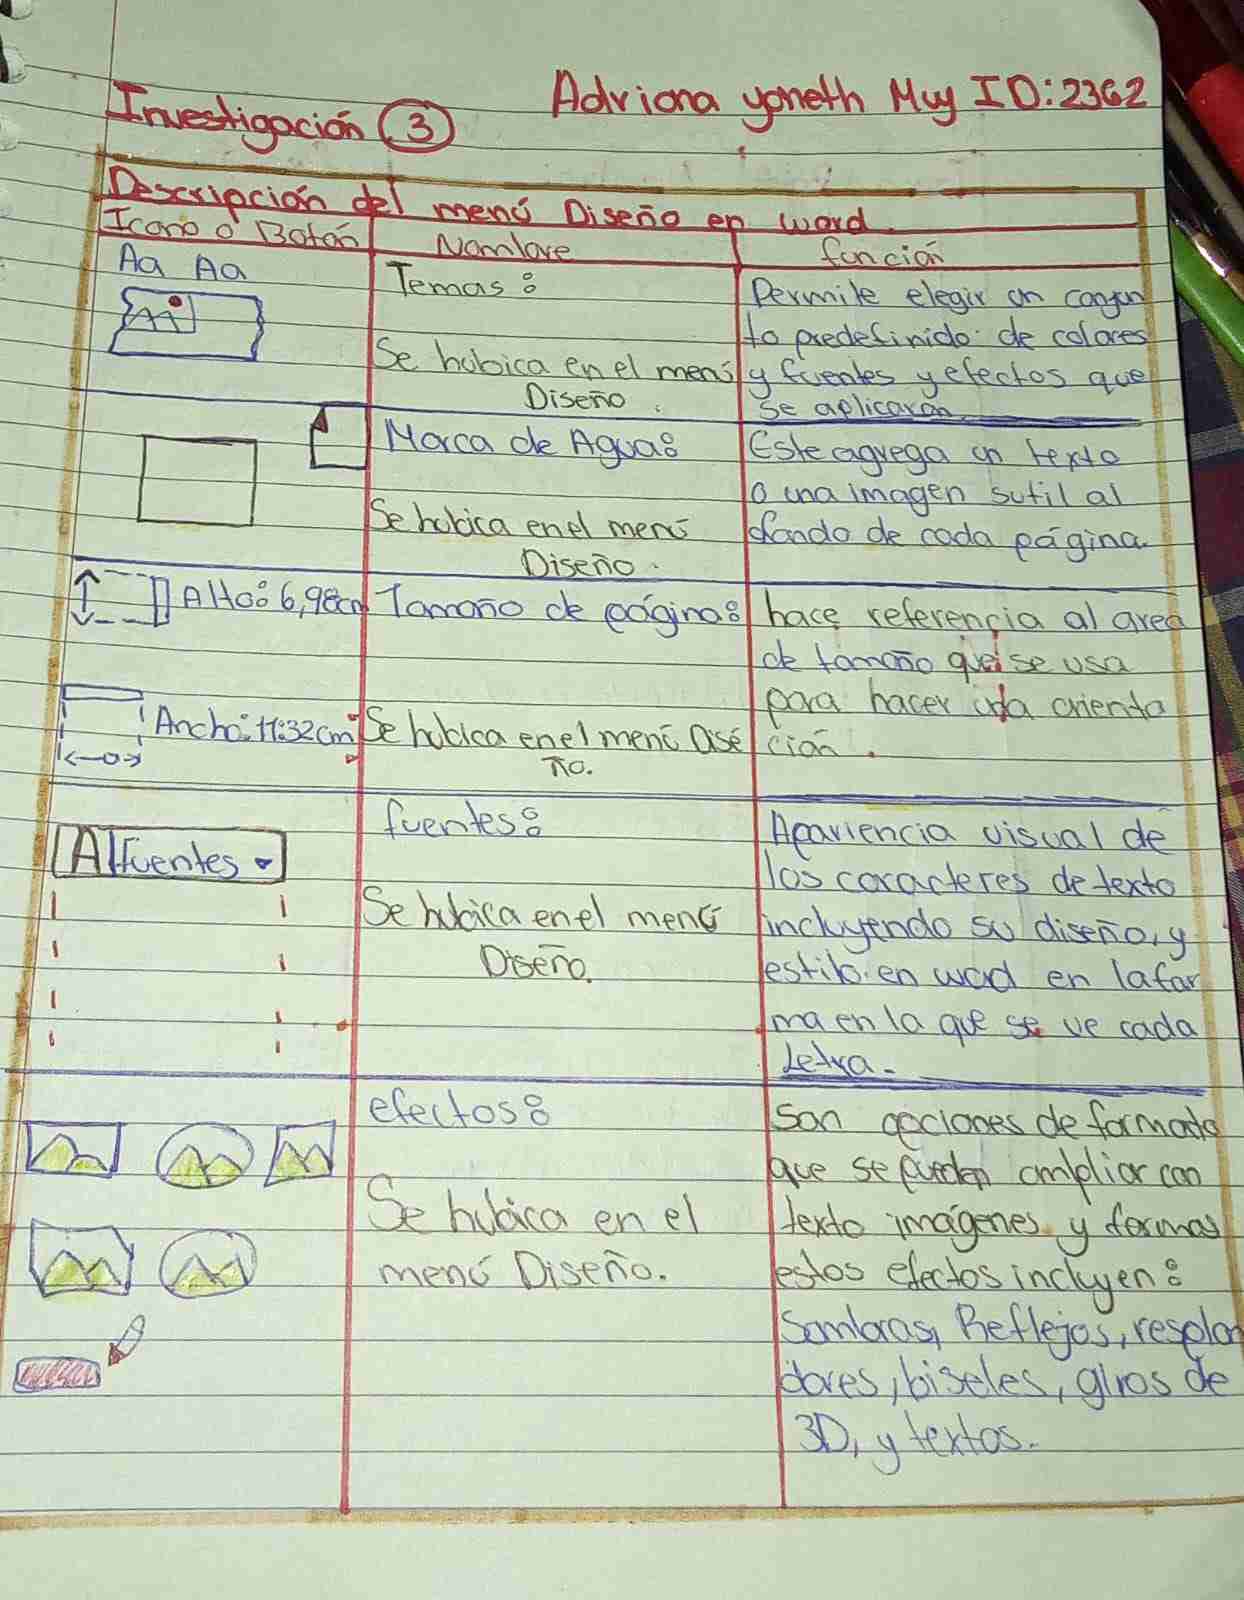 Investigación 3
Adriana yoneth Muy ID: 2362
Descripción del menú Diseño en word.
Icono o Botón
Nombre
función
Aa Aa
Temas:
Se hubica en el menú
Diseño.
Permite elegir un conjun
to predefinido de colores
y fuentes y efectos que
se aplicaran
Marca de Agua:
Se hubica en el menú
Diseño.
Este agrega un texto
o una imagen sutil al
fondo de cada página.
Alto: 6,98cm
Ancho: 11:32cm
Tamaño de página:
Se hubica en el menú Dise
ño.
hace referencia al area
de tamaño que se usa
para hacer una orienta
ción.
A Fuentes
fuentes:
Se hubica en el menú
Diseño.
Apariencia visual de
los caracteres de texto
incluyendo su diseño, y
estilo en wod en la for
ma en la que se ve cada
Letra.
efectos:
Se hubica en el
menú Diseño.
Son opciones de formato
que se pueden ampliar con
texto imágenes y formas
estos efectos incluyen:
Sombras, Reflejos, resplan
dores, biseles, giros de
3D, y textos.